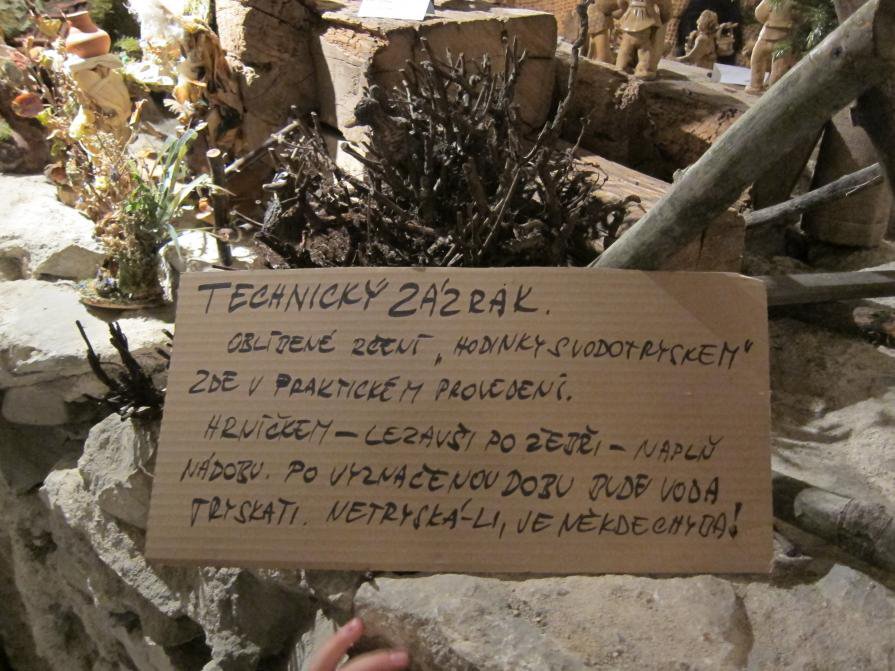 TECHNICKÝ ZÁZRAK.
OBLÍBENÉ RČENÍ „HODINKY S VODOTRYSKEM"
ZDE V PRAKTICKÉM PROVEDENÍ.
HRNÍČKEM – LEZAVŠI PO ŽEBŘI – NAPLŇ
NÁDOBU. PO VYZNAČENOU DOBU BUDE VODA
TRYSKATI. NETRYSKÁ-LI, JE NĚKDE CHYBA!